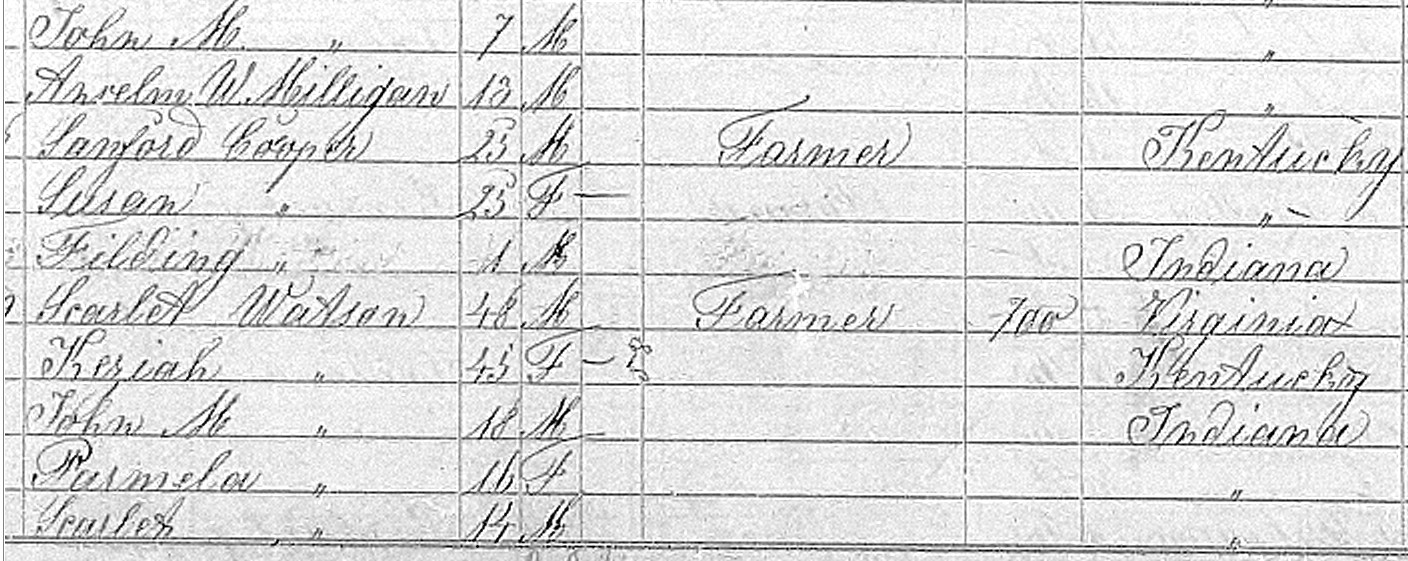 John M. " 7 M "
Anselm W. Milligan 13 M "
Sanford Cooper 25 M Farmer Kentucky
Susan " 25 F "
Filding " 1 M Indiana
Scarlet Watson 48 M Farmer 700 Virginia
Keziah " 45 F Kentucky
John M " 18 M Indiana
Parmela " 16 F "
Scarlet " 14 M "